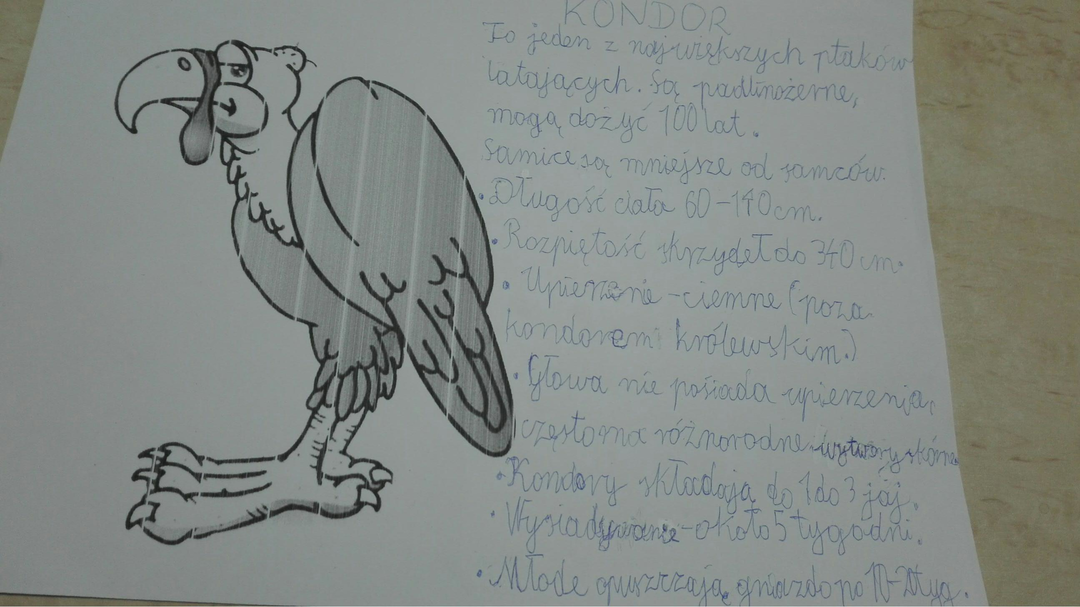 KONDOR
To jeden z największych ptaków
latających. Są padlinożerne,
mogą dożyć 100 lat.
Samice są mniejsze od samców.
• Długość ciała 60-140 cm.
• Rozpiętość skrzydeł do 340 cm.
• Upierzenie - ciemne (poza
kondorem królewskim.)
• Głowa nie posiada upierzenia,
często ma różnorodne wytwory skórne
• Kondory składają do 1 do 3 jaj.
• Wysiadywanie - około 5 tygodni.
• Młode opuszczają gniazdo po 10-20 tyg.